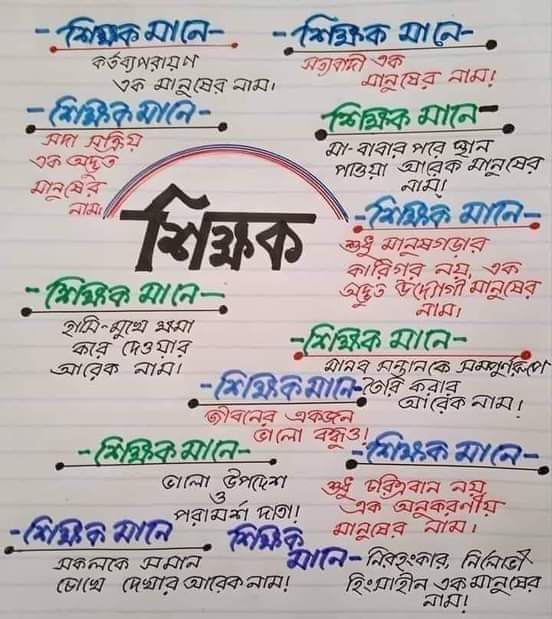 - শিক্ষক মানে-
কর্তব্যপরায়ণ
এক মানুষের নাম।
- শিক্ষক মানে-
সত্যবাদী এক
মানুষের নাম!
- শিক্ষক মানে-
সদা সক্রিয়
এক অদ্ভুত
মানুষের
নাম।
শিক্ষক মানে-
মা-বাবার পরে স্থান
পাওয়া আরেক মানুষের
নাম!
শিক্ষক
- শিক্ষক মানে-
শুধু মানুষগড়ার
কারিগর নয়, এক
অদ্ভুত উদ্যোগী মানুষের
নাম।
- শিক্ষক মানে-
হাসি-মুখে ক্ষমা
করে দেওয়ার
আরেক নাম।
- শিক্ষক মানে-
মানব সন্তানকে সম্পূর্ণরূপে
তৈরি করার
আরেক নাম!
- শিক্ষক মানে-
জীবনের একজন
ভালো বন্ধুও!
- শিক্ষক মানে-
ভালো উপদেশ
ও
পরামর্শ দাতা!
- শিক্ষক মানে-
শুধু চরিত্রবান নয়,
এক অনুকরণীয়
মানুষের নাম।
- শিক্ষক মানে
সকলকে সমান
চোখে দেখার আরেক নাম!
শিক্ষক
মানে- নিরহংকার, নির্লোভী
হিংসাহীন এক মানুষের
নাম!